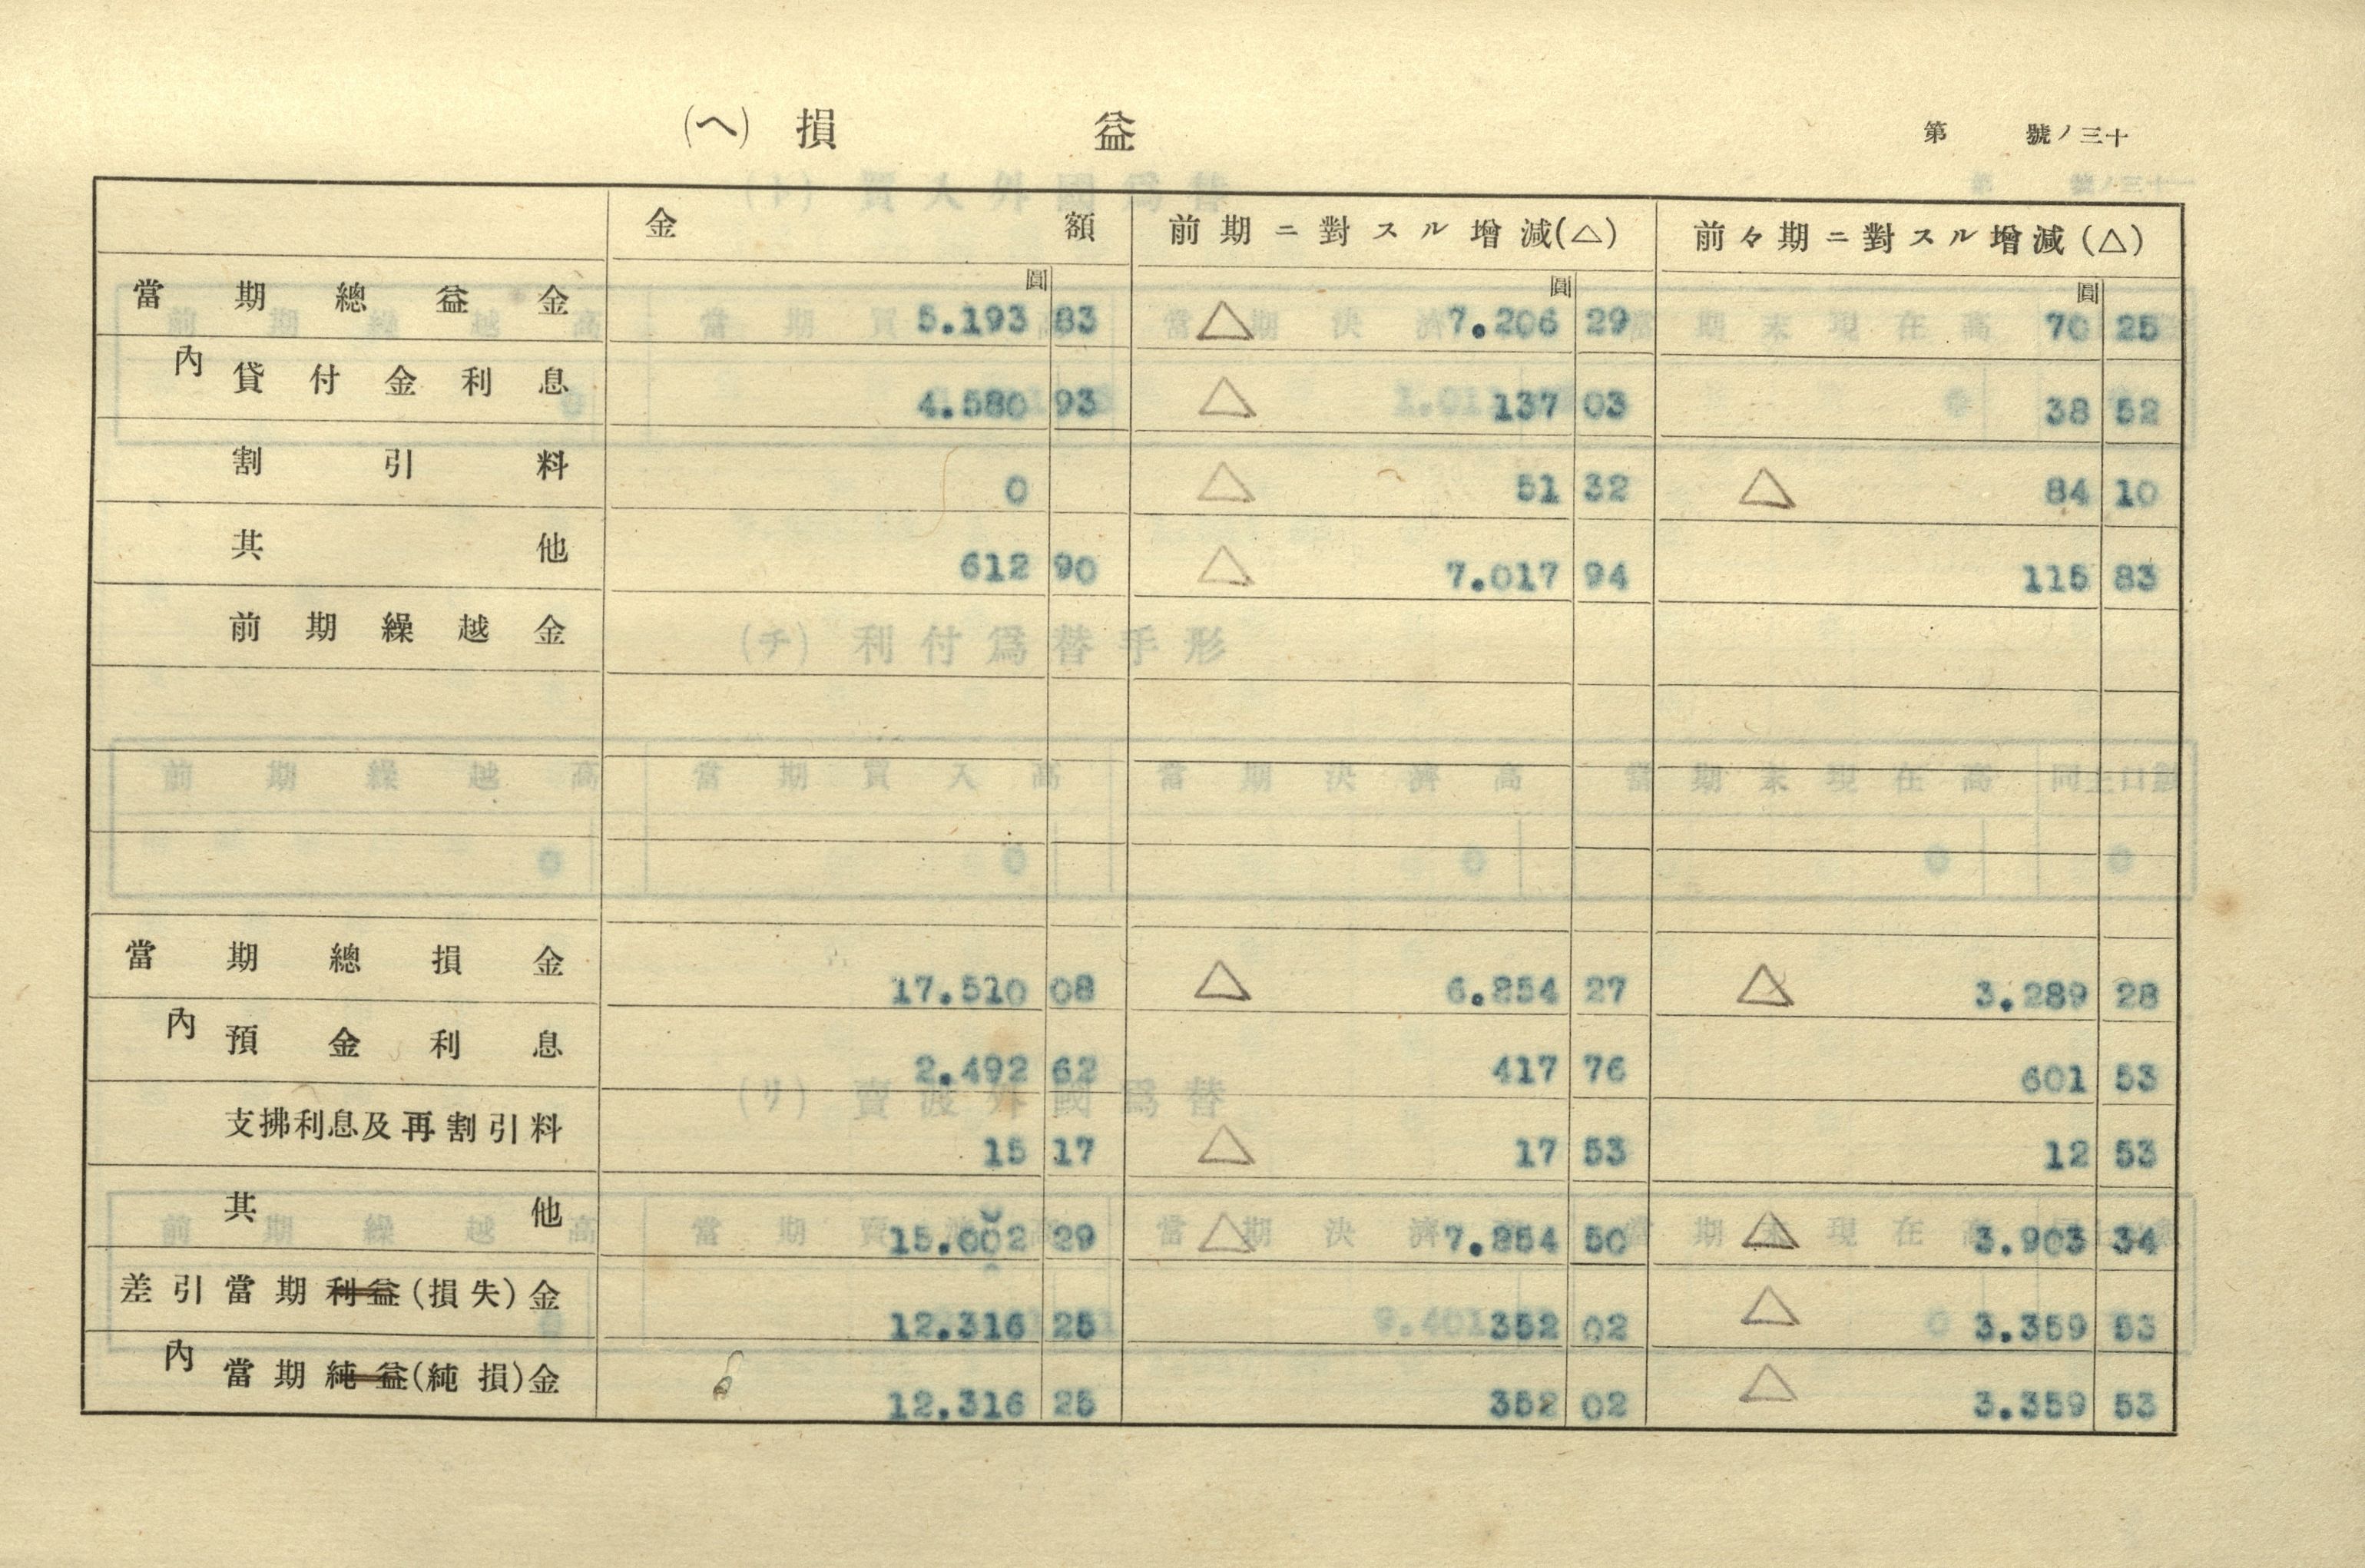 (ヘ) 損益
第 號ノ三十
金額 前期ニ對スル增減(△) 前々期ニ對スル增減(△)
圓 圓 圓
當期總益金 5.193 83 △ 7.206 29 70 25
內 貸付金利息 4.580 93 △ 137 03 38 52
割引料 0 △ 51 32 △ 84 10
其他 612 90 △ 7.017 94 115 83
前期繰越金
當期總損金 17.510 08 △ 6.854 27 △ 3.289 28
內 預金利息 2.492 62 417 76 601 53
支拂利息及再割引料 15 17 △ 17 53 12 53
其他 15.002 29 △ 7.254 50 △ 3.903 34
差引當期利益(損失)金 12.316 25 352 02 △ 3.359 53
內 當期純益(純損)金 12.316 25 352 02 △ 3.359 53